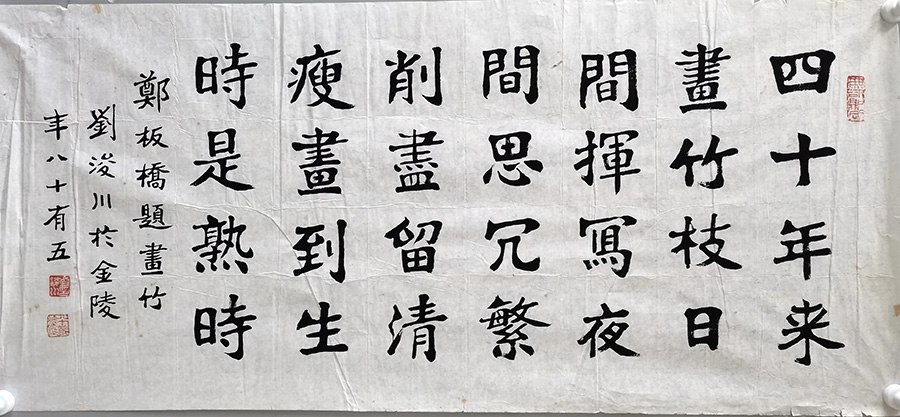 四十年来
畫竹枝日
間揮寫夜
間思冗繁
削盡留清
瘦畫到生
時是熟時
鄭板橋題畫竹
劉浚川於金陵
年八十有五